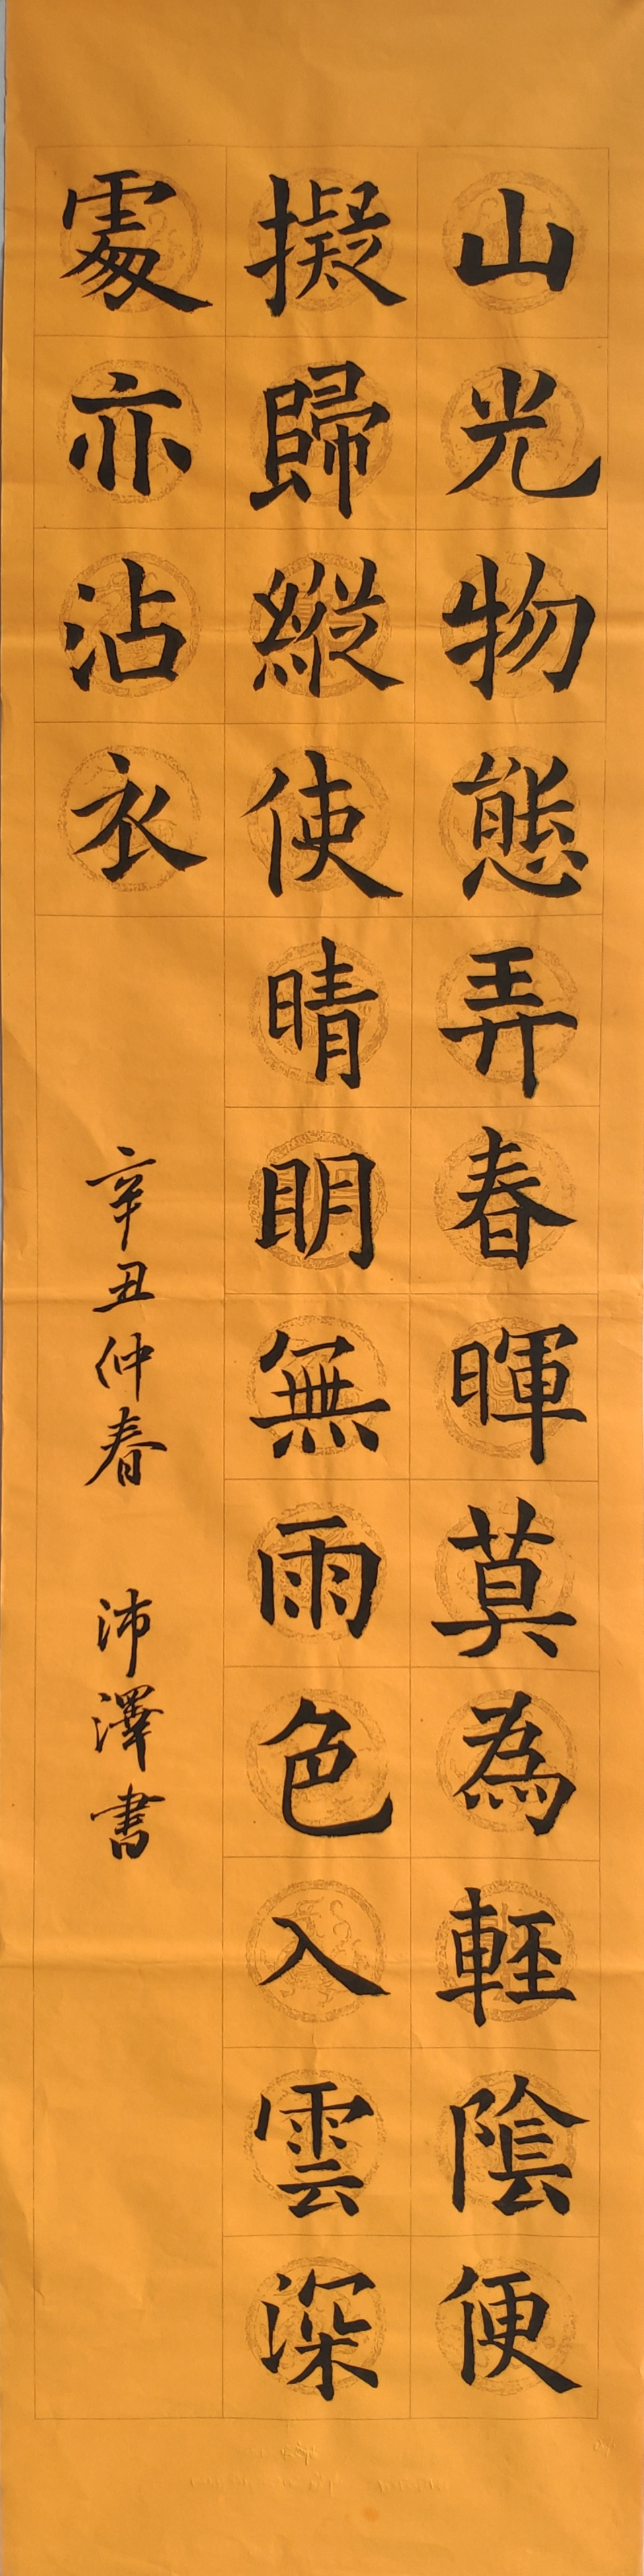 山光物態弄春暉莫為輕陰便
擬歸縱使晴明無雨色入雲深
處亦沾衣
辛丑仲春 沛澤書